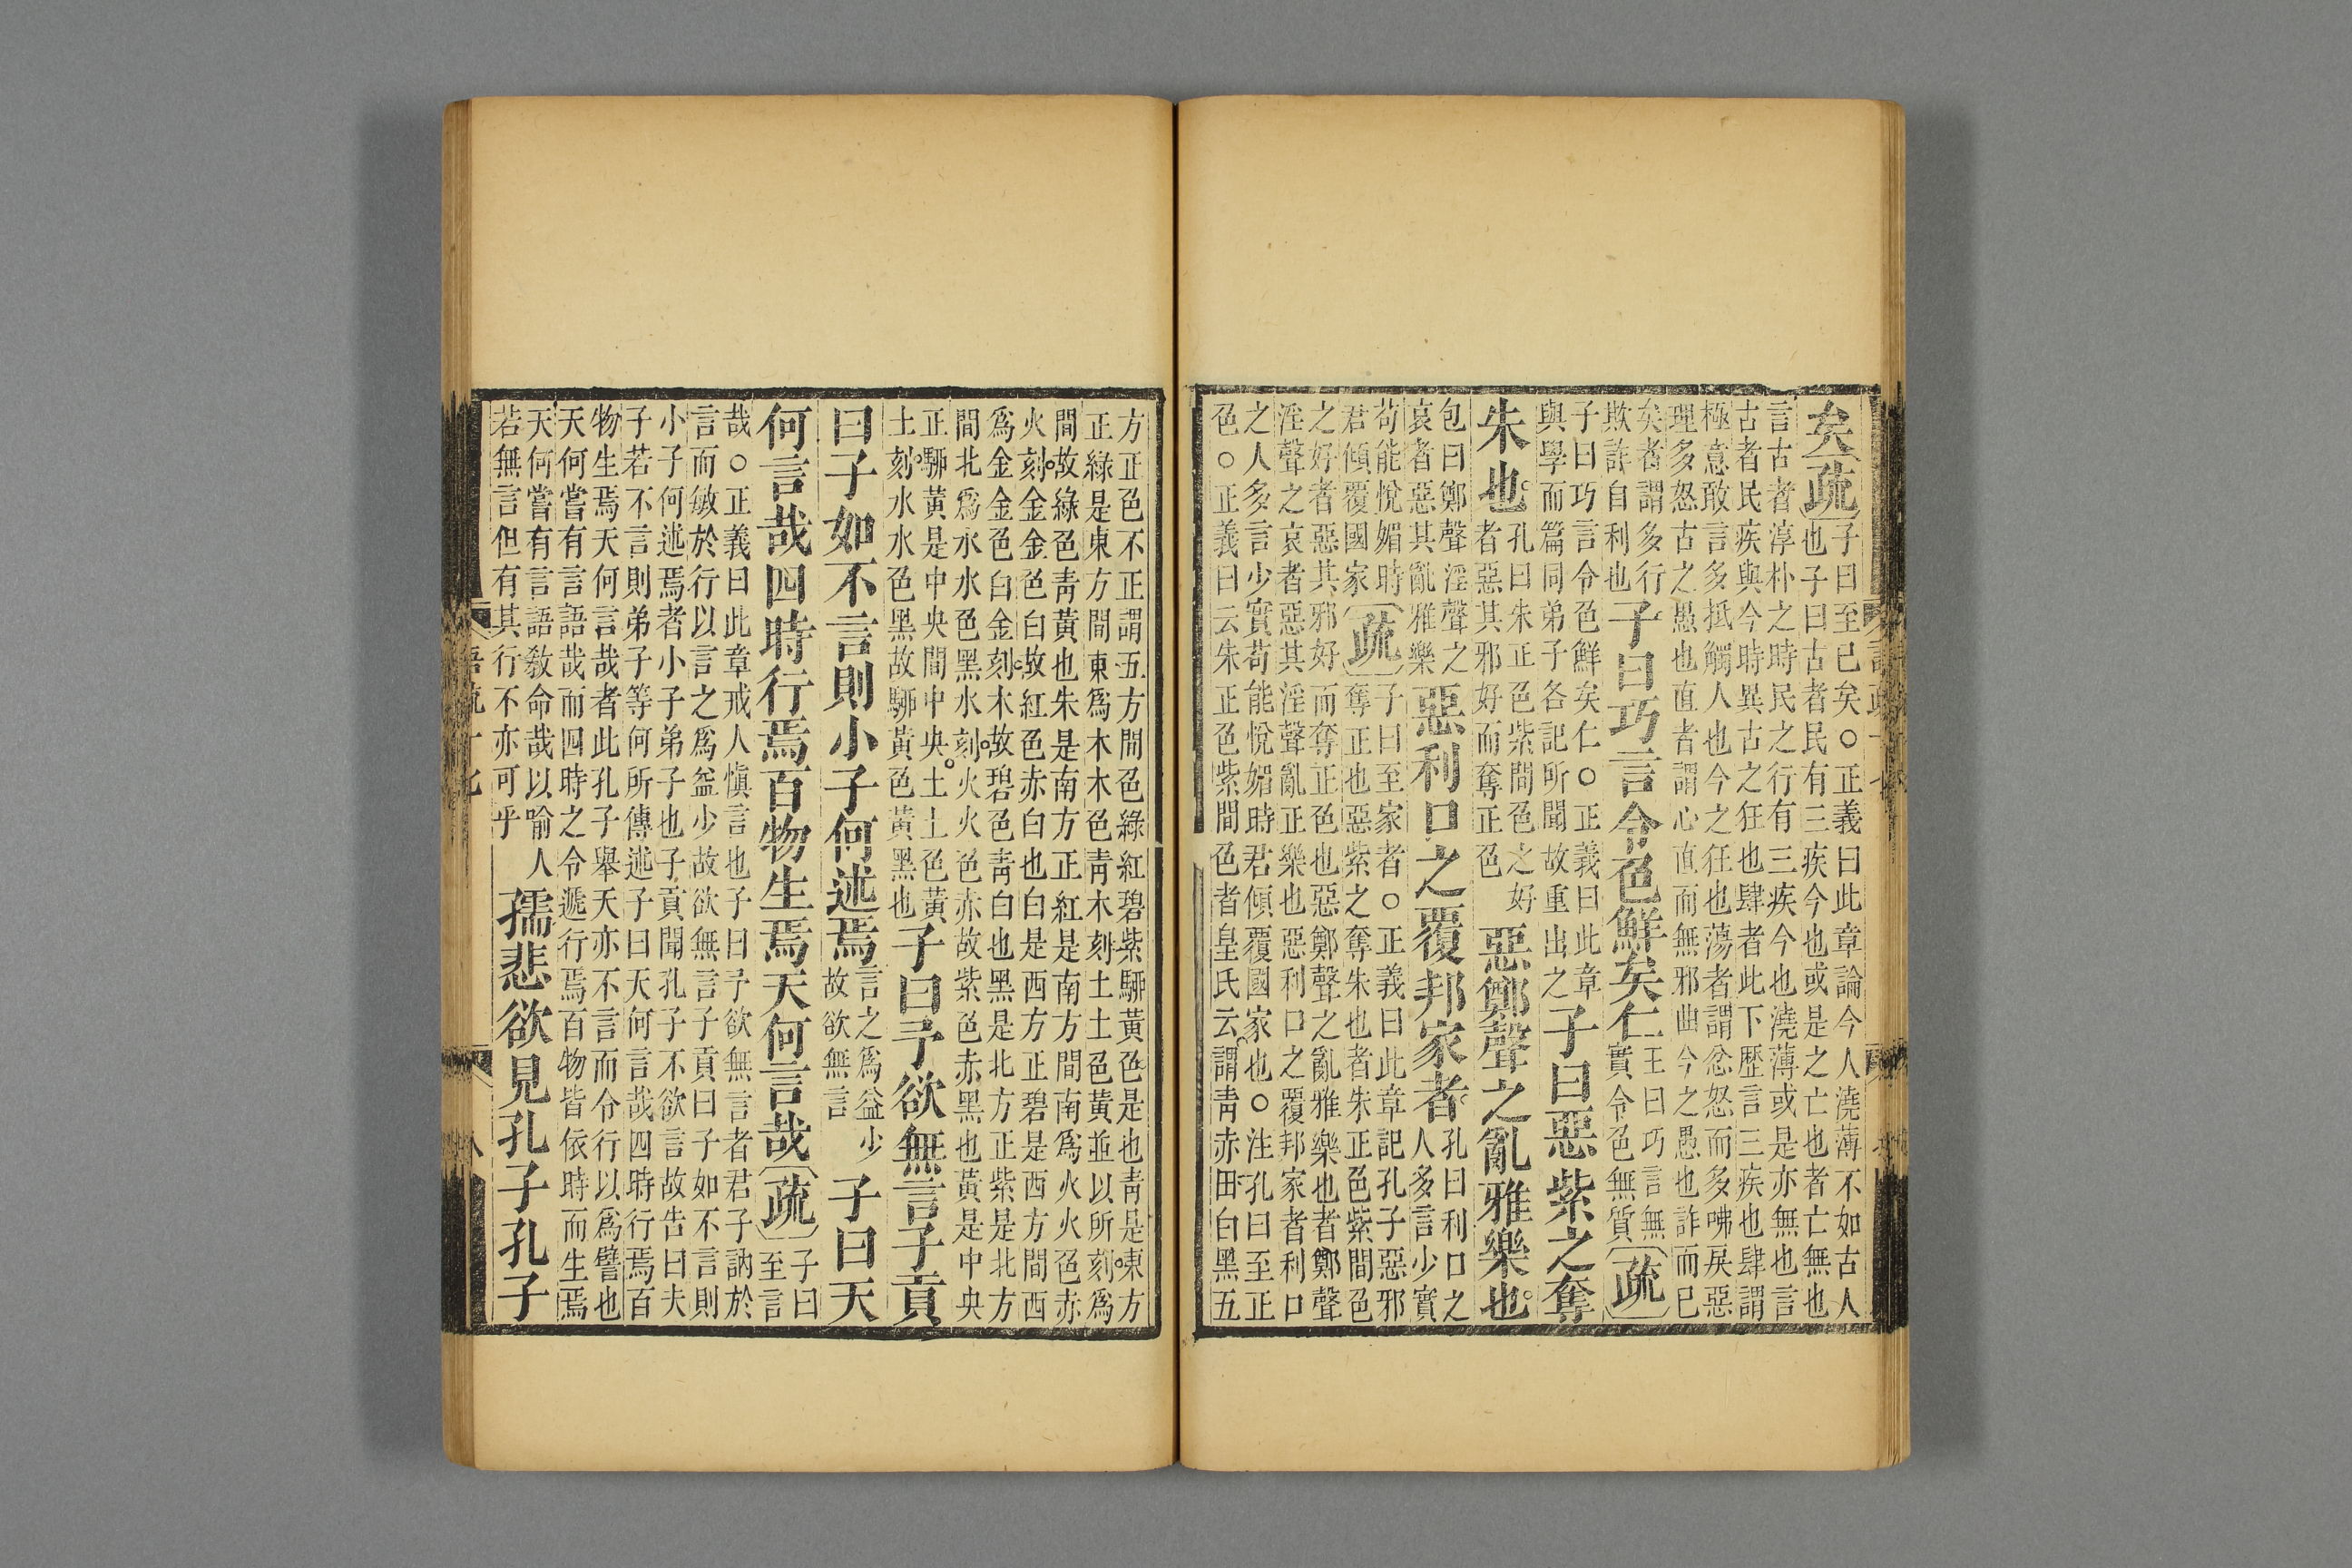 矣疏
子曰至已矣○正義曰此章論今人澆薄不如古人
也子曰古者民有三疾今也或是之亡也者亡無也
言古者淳朴之時民之行有三疾今也澆薄或是亦無也言
古者民疾與今時異古之狂也肆者此下歷言三疾也肆謂
極意敢言多抵觸人也今之狂也蕩者謂忿怒而多咈戾惡
理多怒古之愚也直者謂心直而無邪曲今之愚也詐而已
矣者謂多行
欺詐自利也
子曰巧言令色鮮矣仁
王曰巧言無
實令色無質
疏
子曰巧言令色鮮矣仁○正義曰此章
與學而篇同弟子各記所聞故重出之
子曰惡紫之奪
朱也
孔曰朱正色紫間色之好
者惡其邪好而奪正色
惡鄭聲之亂雅樂也
包曰鄭聲淫聲之
哀者惡其亂雅樂
惡利口之覆邦家者
孔曰利口之
人多言少實
苟能悅媚時
君傾覆國家
疏
子曰至家者○正義曰此章記孔子惡邪
奪正也惡紫之奪朱也者朱正色紫間色
之好者惡其邪好而奪正色也惡鄭聲之亂雅樂也者鄭聲
淫聲之哀者惡其淫聲亂正樂也惡利口之覆邦家者利口
之人多言少實苟能悅媚時君傾覆國家也○注孔曰至正
色○正義曰云朱正色紫間色者皇氏云謂青赤田白黑五
方正色不正謂五方間色綠紅碧紫駵黃色是也青是東方
正綠是東方間東爲木木色青木刻土土色黃並以所刻爲
間故綠色青黃也朱是南方正紅是南方間南爲火火色赤
火刻金金色白故紅色赤白也白是西方正碧是西方間西
爲金金色白金刻木故碧色青白也黑是北方正紫是北方
間北爲水水色黑水刻火火色赤故紫色赤黑也黃是中央
正駵黃是中央間中央土土色黃
土刻水水色黑故駵黃色黃黑也
子曰予欲無言子貢
曰子如不言則小子何述焉
言之爲益少
故欲無言
子曰天
何言哉四時行焉百物生焉天何言哉疏
子曰
至言
哉○正義曰此章戒人愼言也子曰予欲無言者君子訥於
言而敏於行以言之爲益少故欲無言子貢曰子如不言則
小子何述焉者小子弟子也子貢聞孔子不欲言故告曰夫
子若不言則弟子等何所傳述子曰天何言哉四時行焉百
物生焉天何言哉者此孔子舉天亦不言而令行以爲譬也
天何嘗有言語哉而四時之令遞行焉百物皆依時而生焉
天何嘗有言語敎命哉以喻人
若無言但有其行不亦可乎
孺悲欲見孔子孔子